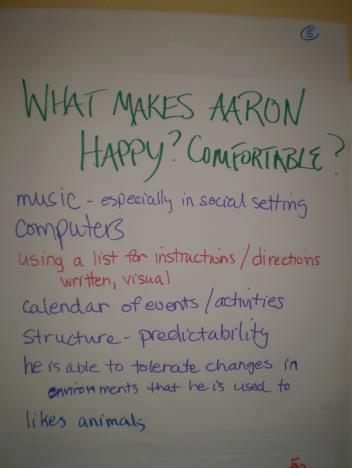 5
WHAT MAKES AARON
HAPPY? COMFORTABLE?
music - especially in social setting
computers
using a list for instructions/directions
written, visual
calendar of events/activities
structure - predictability
he is able to tolerate changes in
environments that he is used to
likes animals